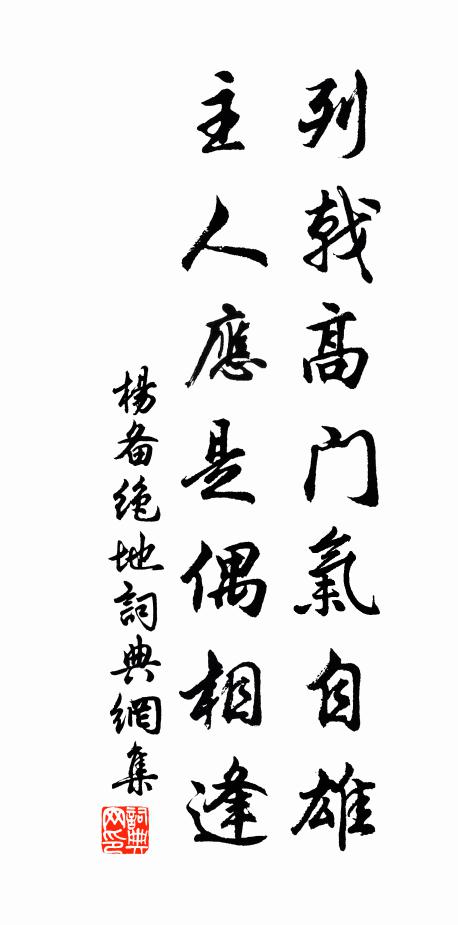 列戟高門氣自雄
主人應是偶相逢
楊备絶地詞典網集
詞典網印